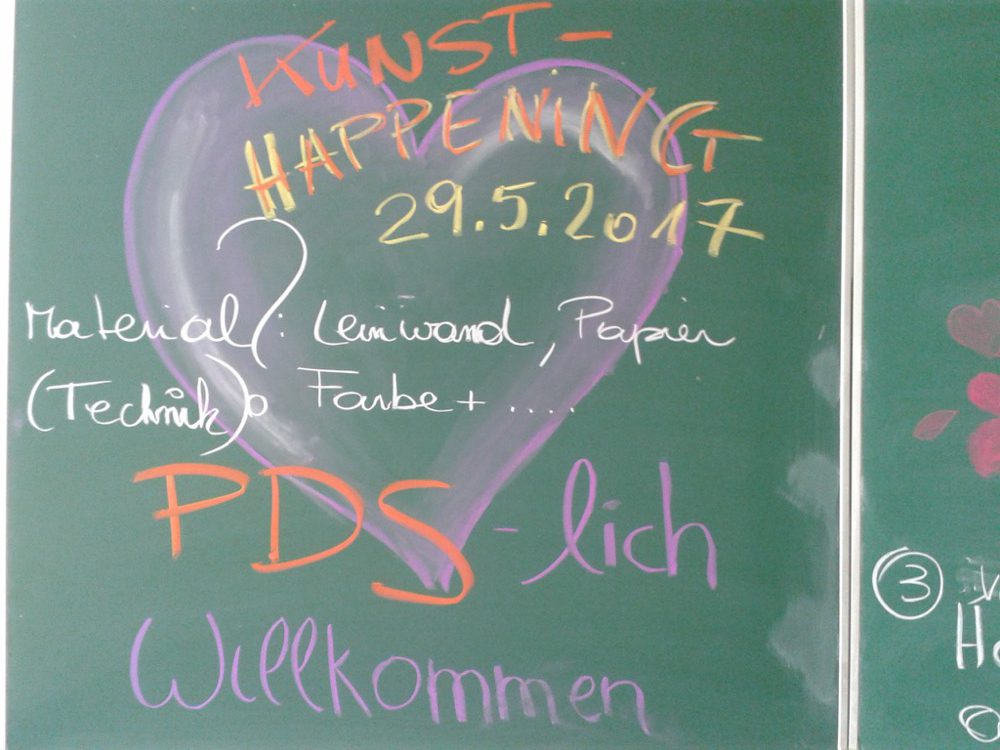 KUNST-
HAPPENING
29.5.2017
Material?: Leinwand, Papier
(Technik) Farbe + ....
PDS-lich
Willkommen
3